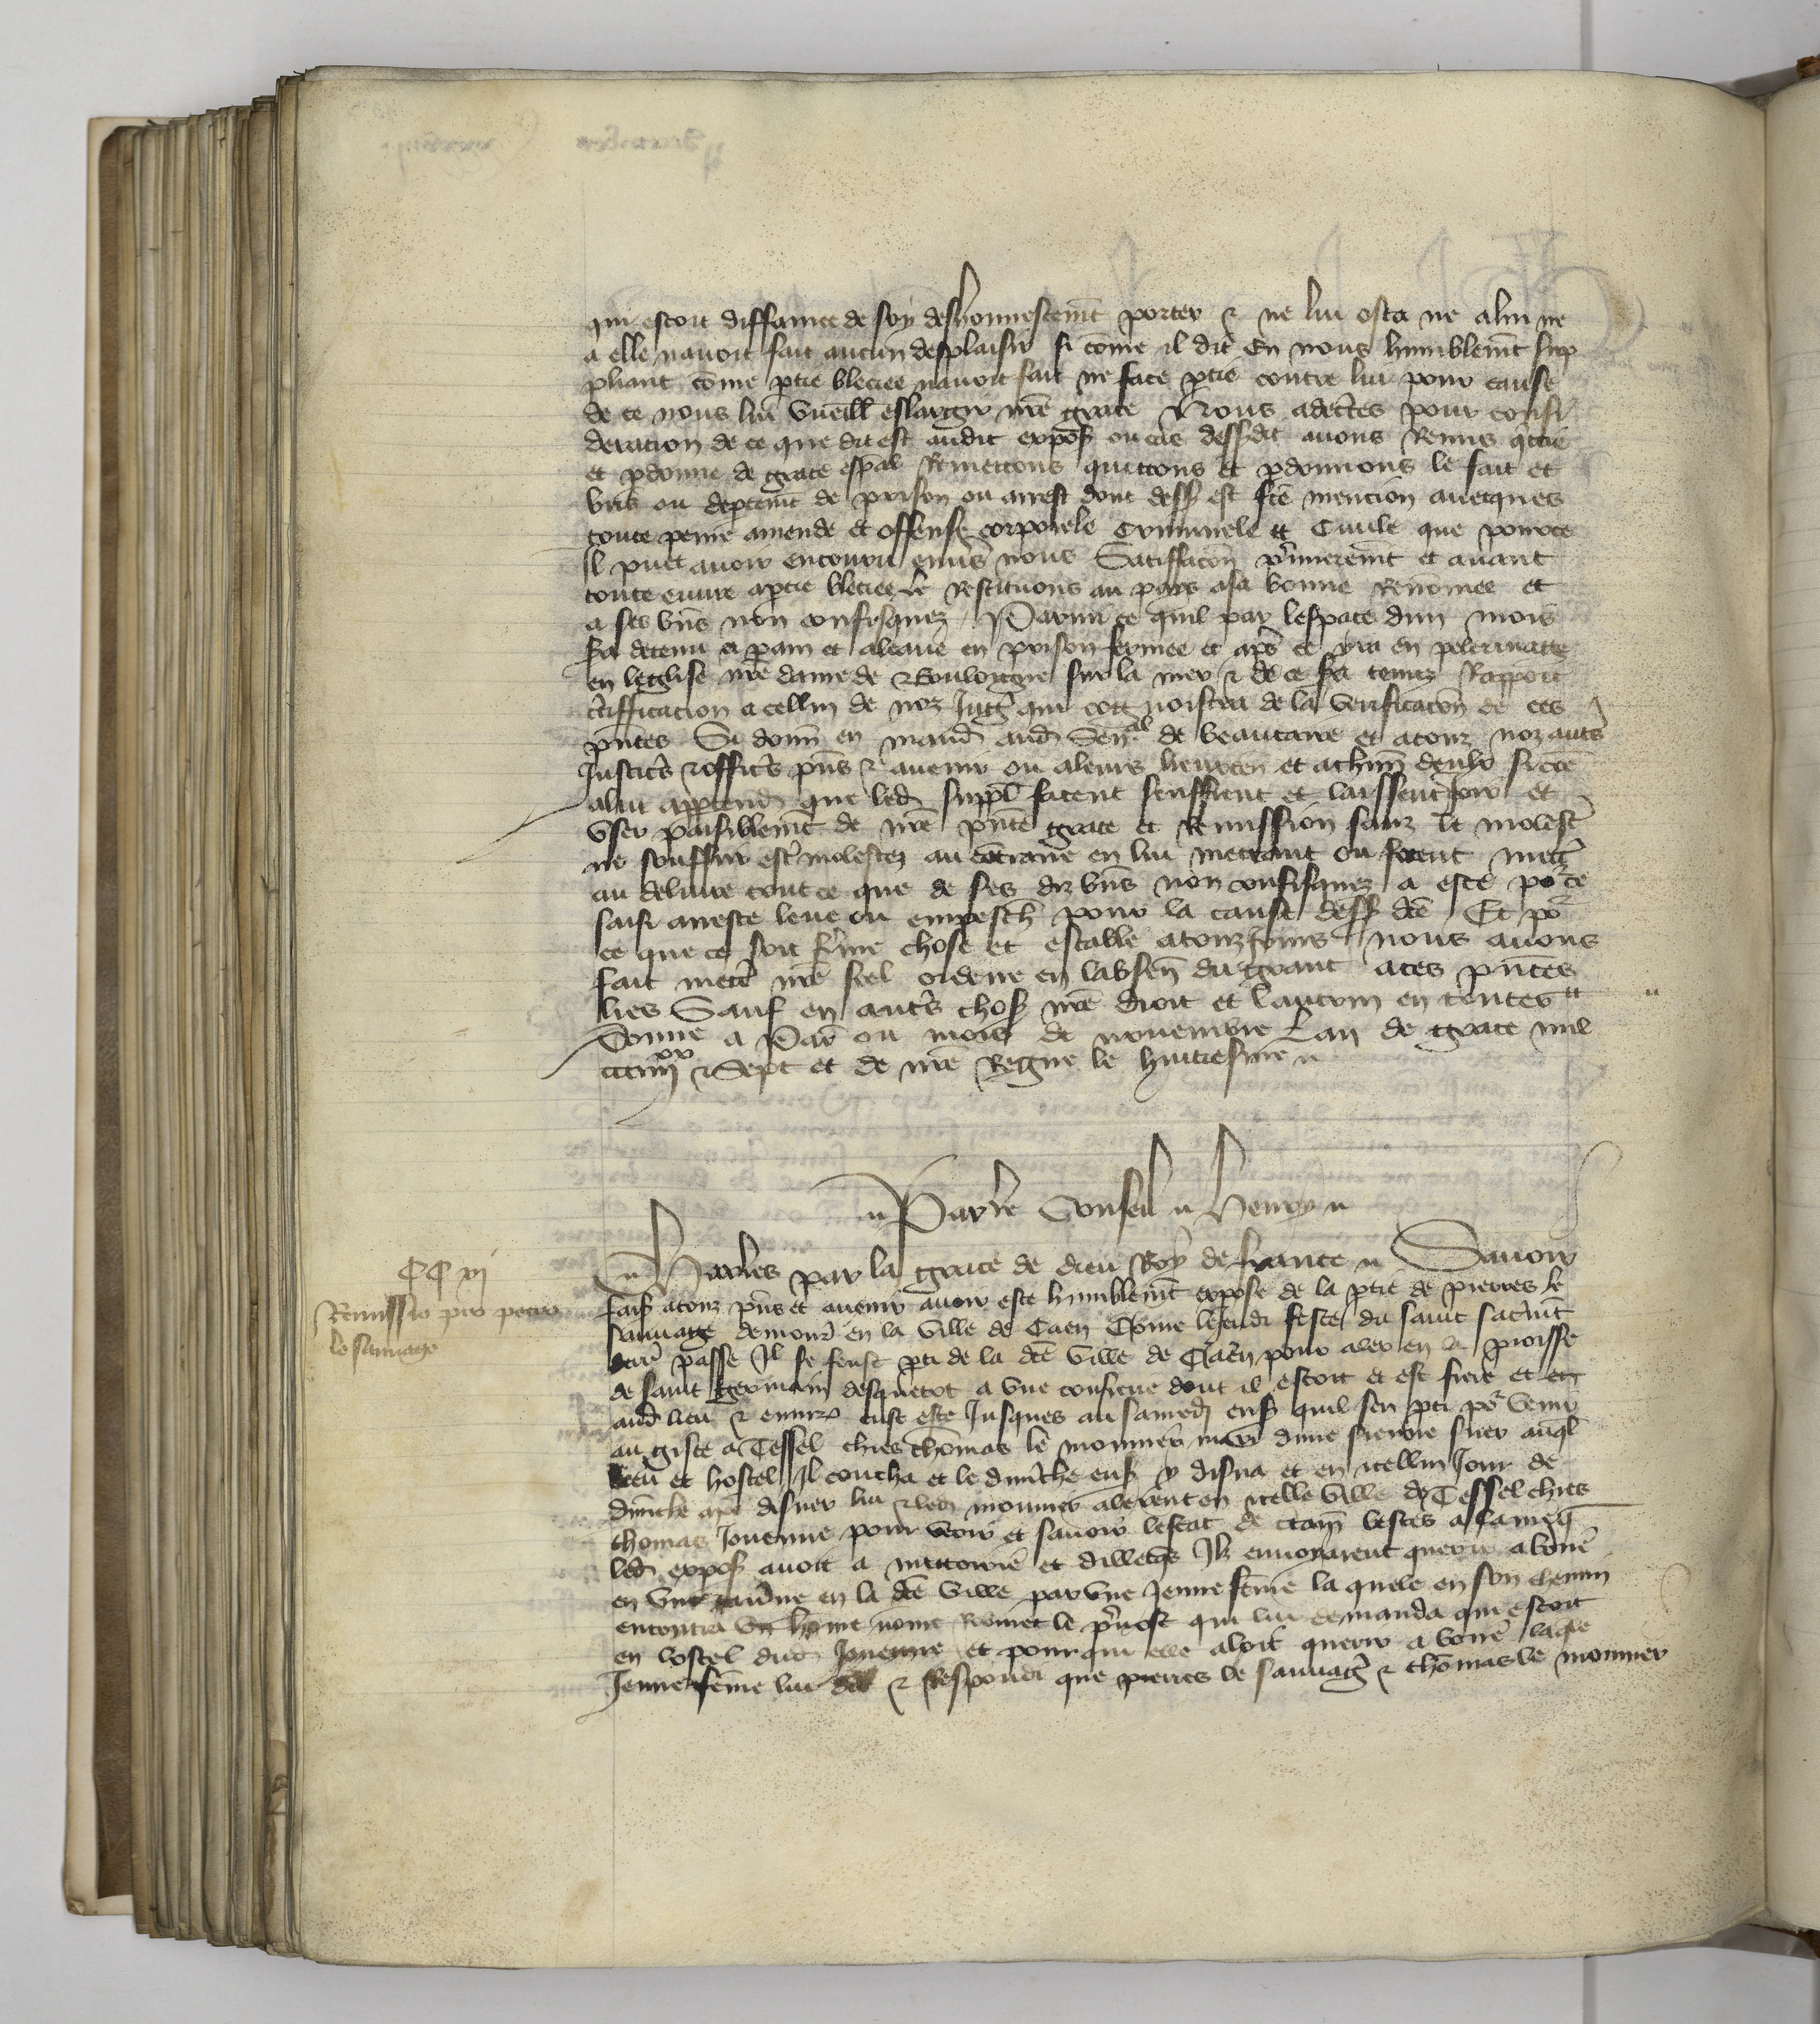 qui estoit diffamee de soy deshonnestemt porter & ne lui osta ne a lui ne
a elle navoit fait aucun desplaisir si come il dit En nous humblemt sup
pliant come ptie bleciee navoit fait ne face ptie contre lui pour cause
de ce nous lui vueill eslargir nre grace Nous adectes pour consi
deracion de ce que dit est audit expos ou cas dessusdit avons Remis quitie
et pdonne de grace espal Remettons quittons et pdonnons le fait et
bris ou deptemt de prison ou arrest dont dess est fte mencion avecques
toute peine amende et offense corporele Criminele et Civile que pour ce
Il puet avoir encouru envs nous Satiffacon pmieremt et avant
toute euvre a ptie bleciee le Restituons au pays a sa bonne Renomee et
a ses bns non confisquez Parmi ce quil par lespace dun mois
sa detenu a pain et a leaue en prison fermee et aps ce yra en pelerinatge
en leglise nre dame de Bouloigne sur la mer & de ce sa tenuz Rappoit
ctifficacion a cellui de noz Jutg qui cognoistra de la verificacon de ces
pntes Si donn en mand aud Senal de beaucaire et a touz noz auts
Justics & offics pns & avenir ou a leurs lieuxten et a chun deulx sicoe
a lui apptend que led suppl facent seuffrent et laissent joir et
user paisiblemt de nre pnte grace et Remission sanz le molest
ne souffrir est molestez au contraire en lui mectant ou facent mett
au delivre tout ce que de ses diz bns non confisquez a este por ce
saisi arreste leve ou empesch pour la cause dess dce Et por
ce que ce soit ferme chose et estable a touz jours nous avons
fait mete nre seel ordene en labsen du grant a ces pntes
lres Sauf en auts chos nre droit et lautrui en toutes
Donne a Par ou mois de novembre Lan de grace mil
ccciiiixx & Sept et de nre Regne le huitiesme
Par le Conseil Henry
CC xi
Remissio pro petro
le sauvage
Charles par la grace de dieu Roy de france Savoir
fais a touz pns et avenir avoir este humblemt expose de la ptie de pierres le
sauvatge demour en la ville de Caen Come le jeudi feste du saint sacremt
derr passe Il se feust pti de la dce ville de Caen pour aler en la proisse
de saint germain desquetot a une confrerie dont il estoit et est frere et
aud lieu & environ eust este Jusques au samedi ens quil sen pti por venir
au giste a Tessel chies thomas le monnier mari dune sienne suer auql
lieu et hostel Il coucha et le dimche ens y disna et en icellui Jour de
dimche aps disner lui & led monnier alerent en icelle ville de Tessel chies
thomas Jouenne pour veoir et savoir lestat de ctain bestes a lame q
led expos avoit a moitoirie et dillecqs Ilz envoyerent querir a boire
en une taverne en la dce ville par une Jeune feme la quele en son chemin
encontra un home nome Roumet le prvost qui lui demanda qui estoit
en lostel dud Jouenne et pour qui elle aloit querir a boire laqle
Jeune feme lui dit & Respondi que pierres le sauvatg & thomas le monnier